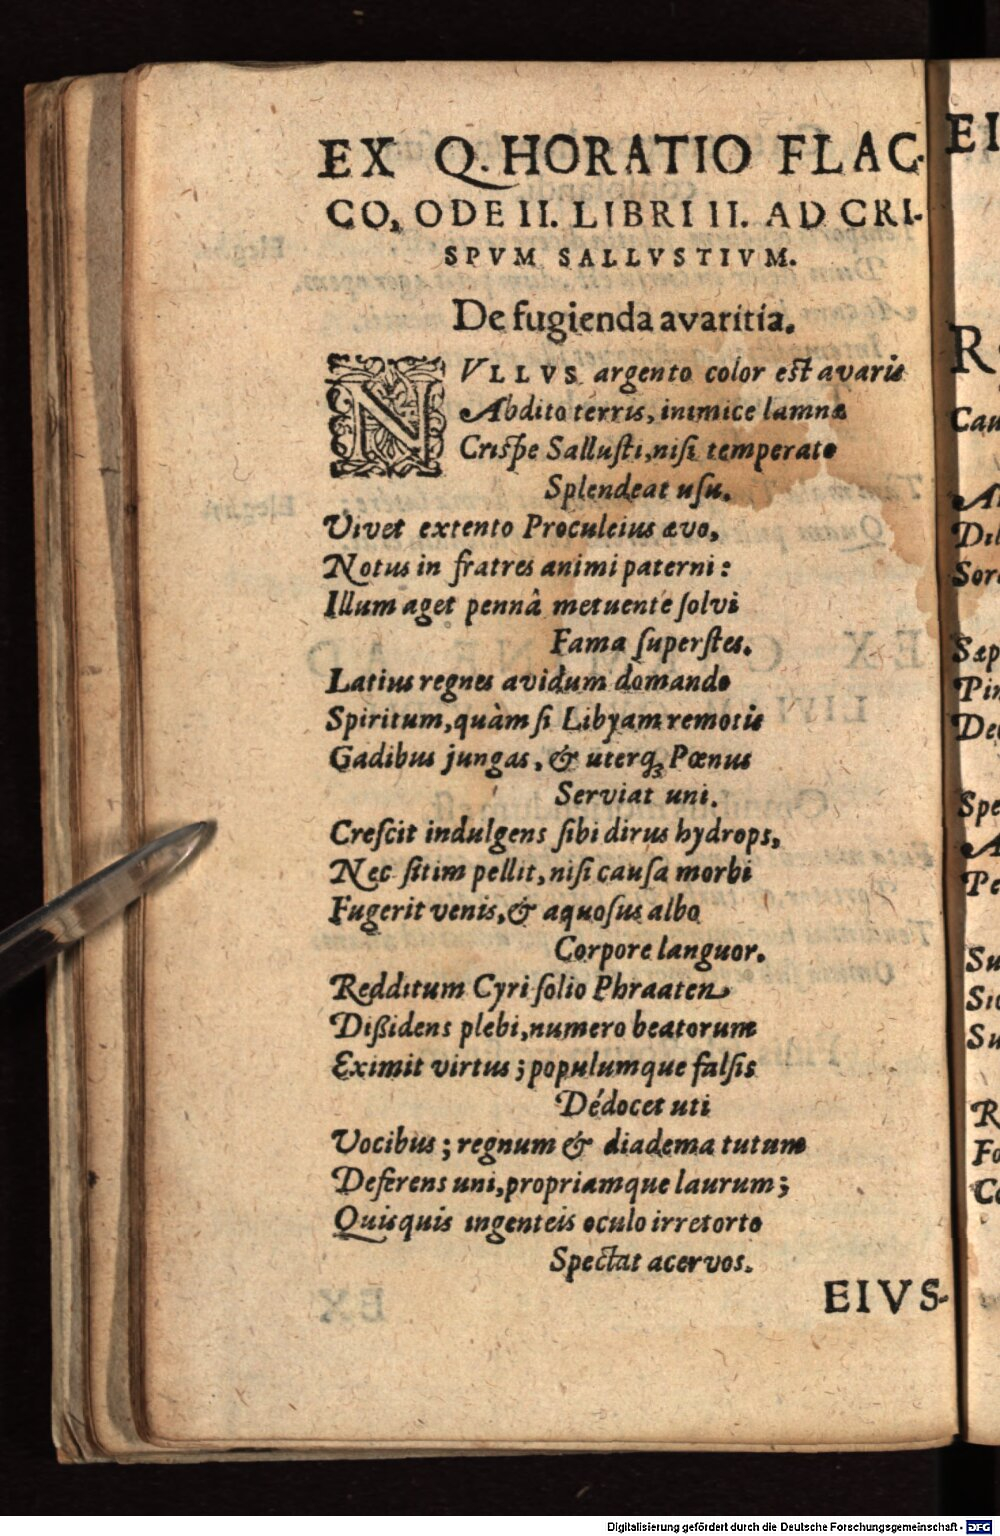 EX Q. HORATIO FLAC-
CO, ODE II. LIBRI II. AD CRI-
SPVM SALLVSTIVM.
De fugienda avaritia.
NVLLVS argento color est avaris
Abdito terris, inimice lamnæ
Crispe Sallusti, nisi temperato
Splendeat usu.
Vivet extento Proculeius ævo,
Notus in fratres animi paterni:
Illum aget pennâ metuente solvi
Fama superstes.
Latius regnes avidum domando
Spiritum, quàm si Libyam remotis
Gadibus jungas, & uterq; Pœnus
Serviat uni.
Crescit indulgens sibi dirus hydrops,
Nec sitim pellit, nisi causa morbi
Fugerit venis, & aquosus albo
Corpore languor.
Redditum Cyri solio Phraaten
Dißidens plebi, numero beatorum
Eximit virtus; populumque falsis
Dédocet uti
Vocibus; regnum & diadema tutum
Deferens uni, propriamque laurum;
Quisquis ingenteis oculo irretorto
Spectat acervos.
EIVS-
Digitalisierung gefördert durch die Deutsche Forschungsgemeinschaft - DFG